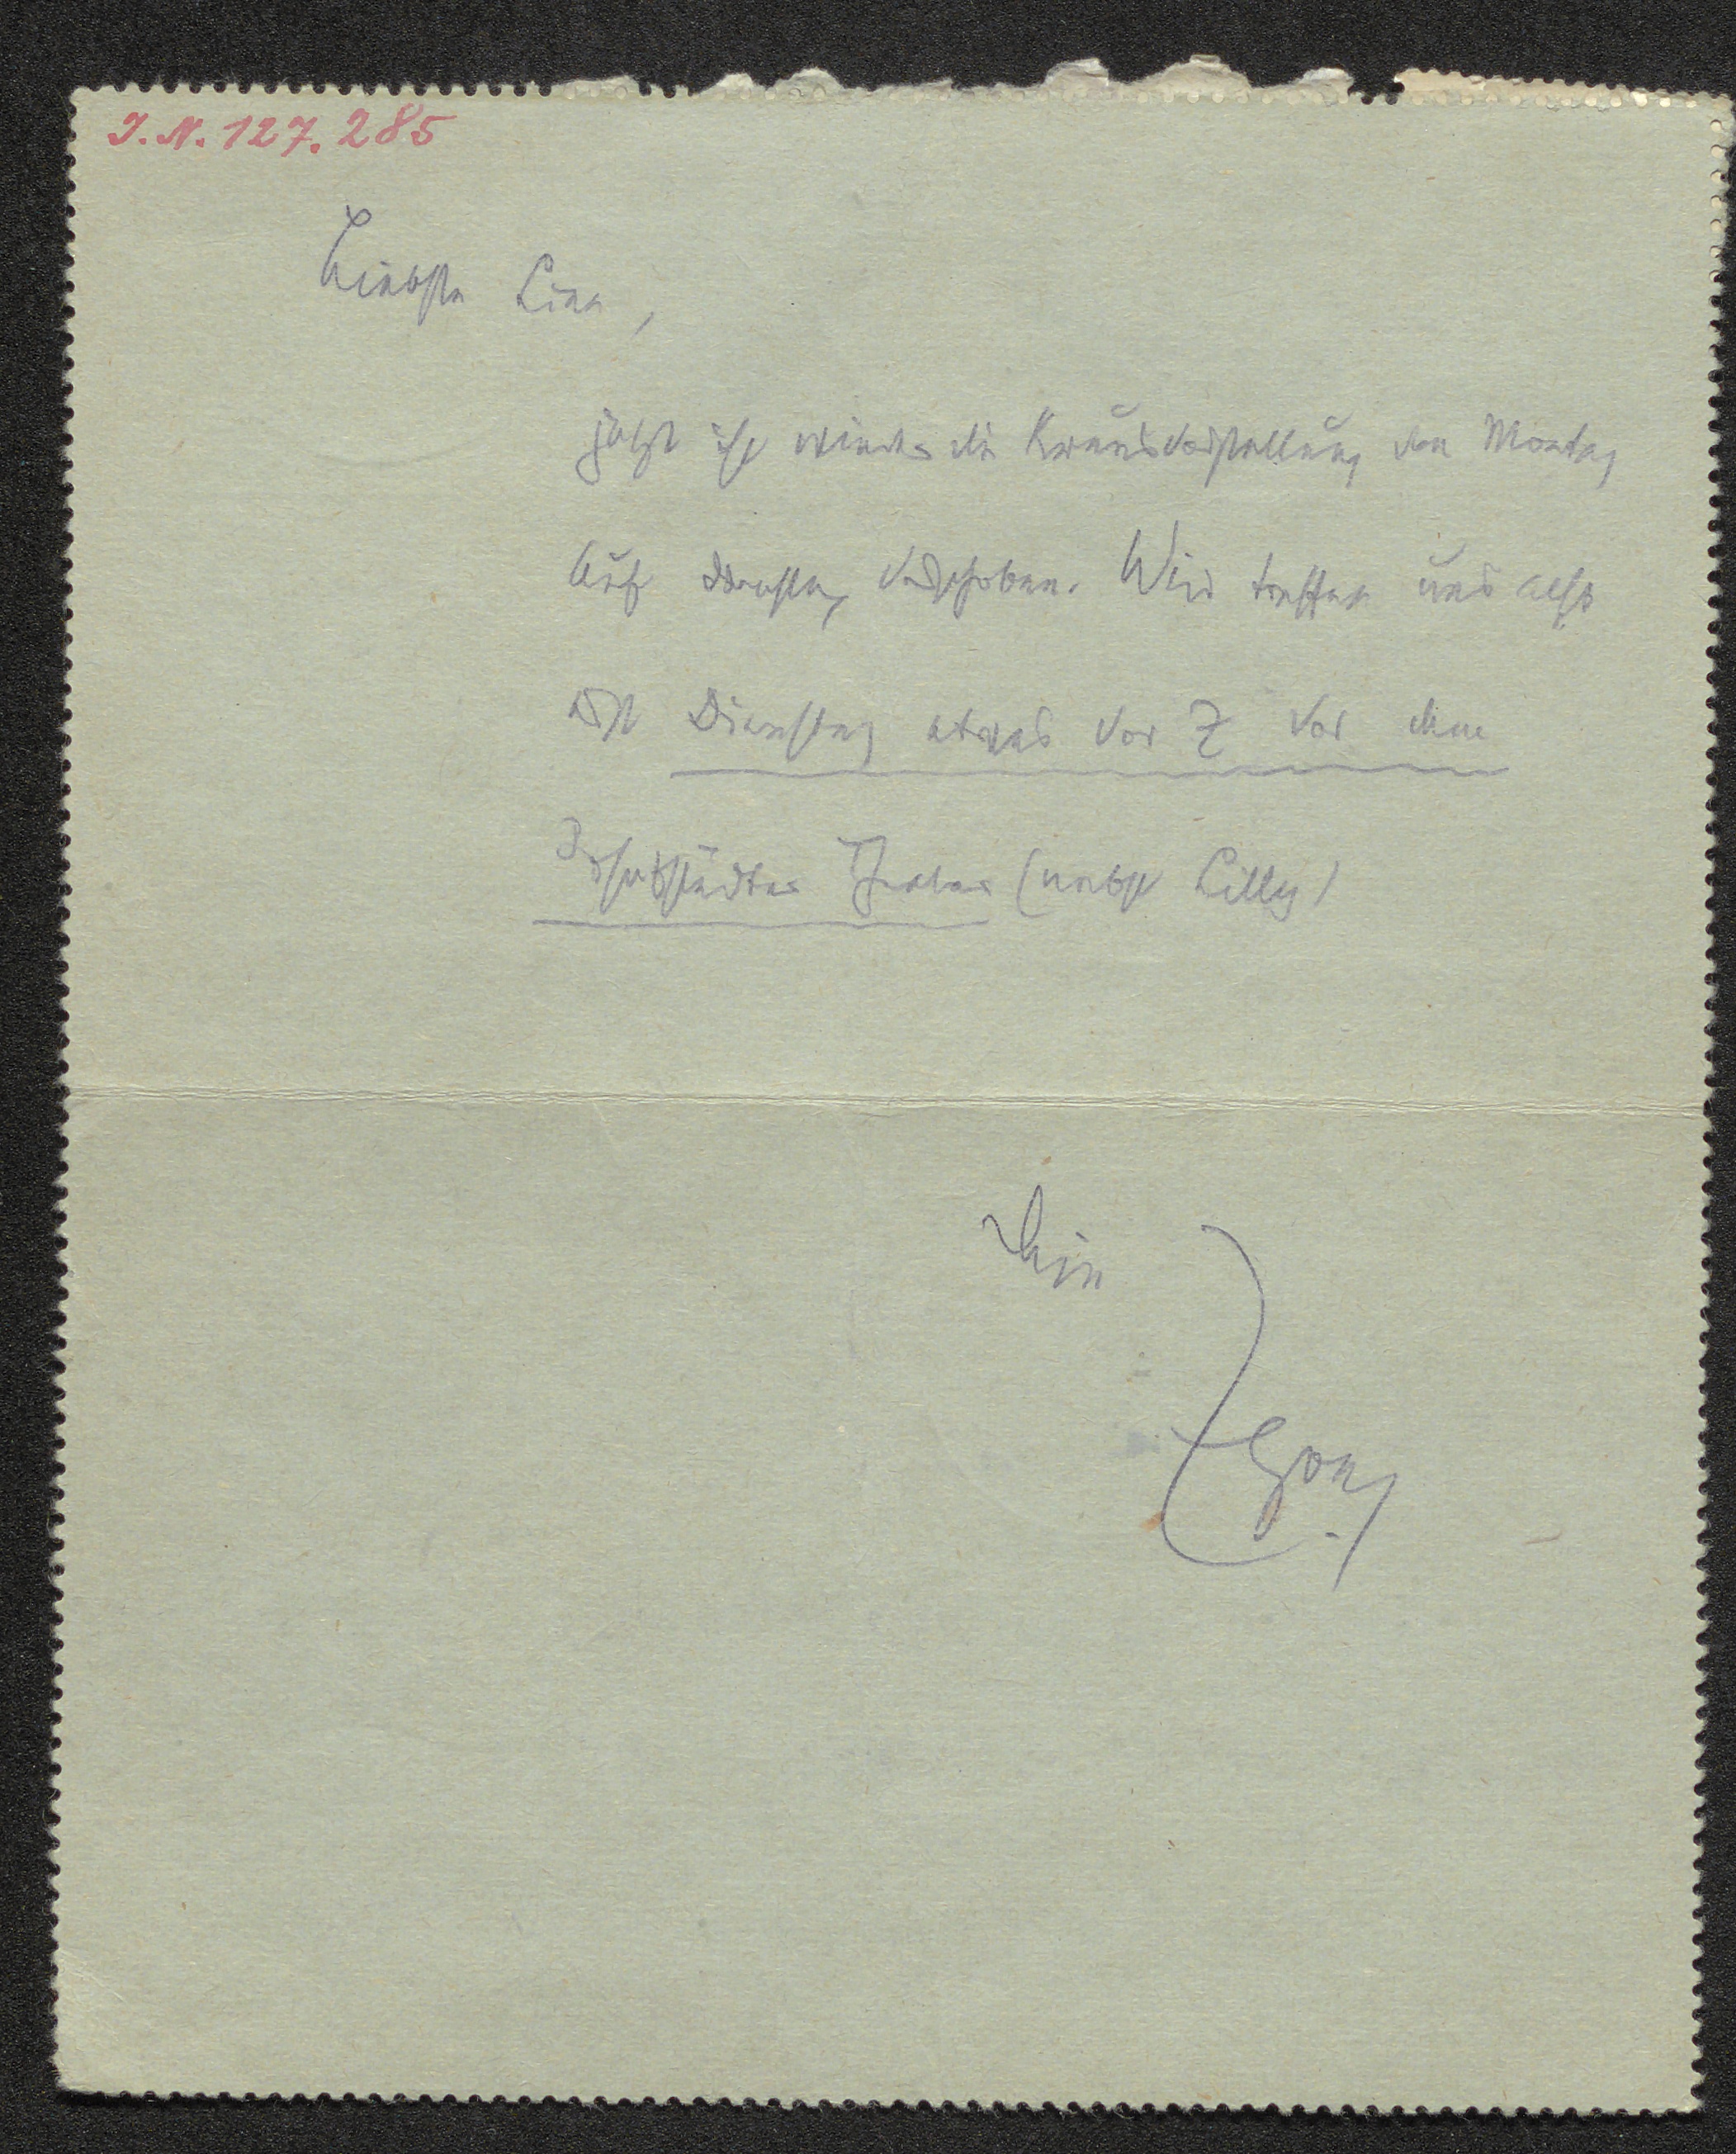 I.N. 127.285
Liebste Lina,
jetzt ist wieder die Krausvorstellung von Montag
auf Dienstag verschoben. Wir treffen uns also
erst Dienstag etwas vor 7 vor dem
Josefstädter Theater (nebst Lilly)
Dein
Egon